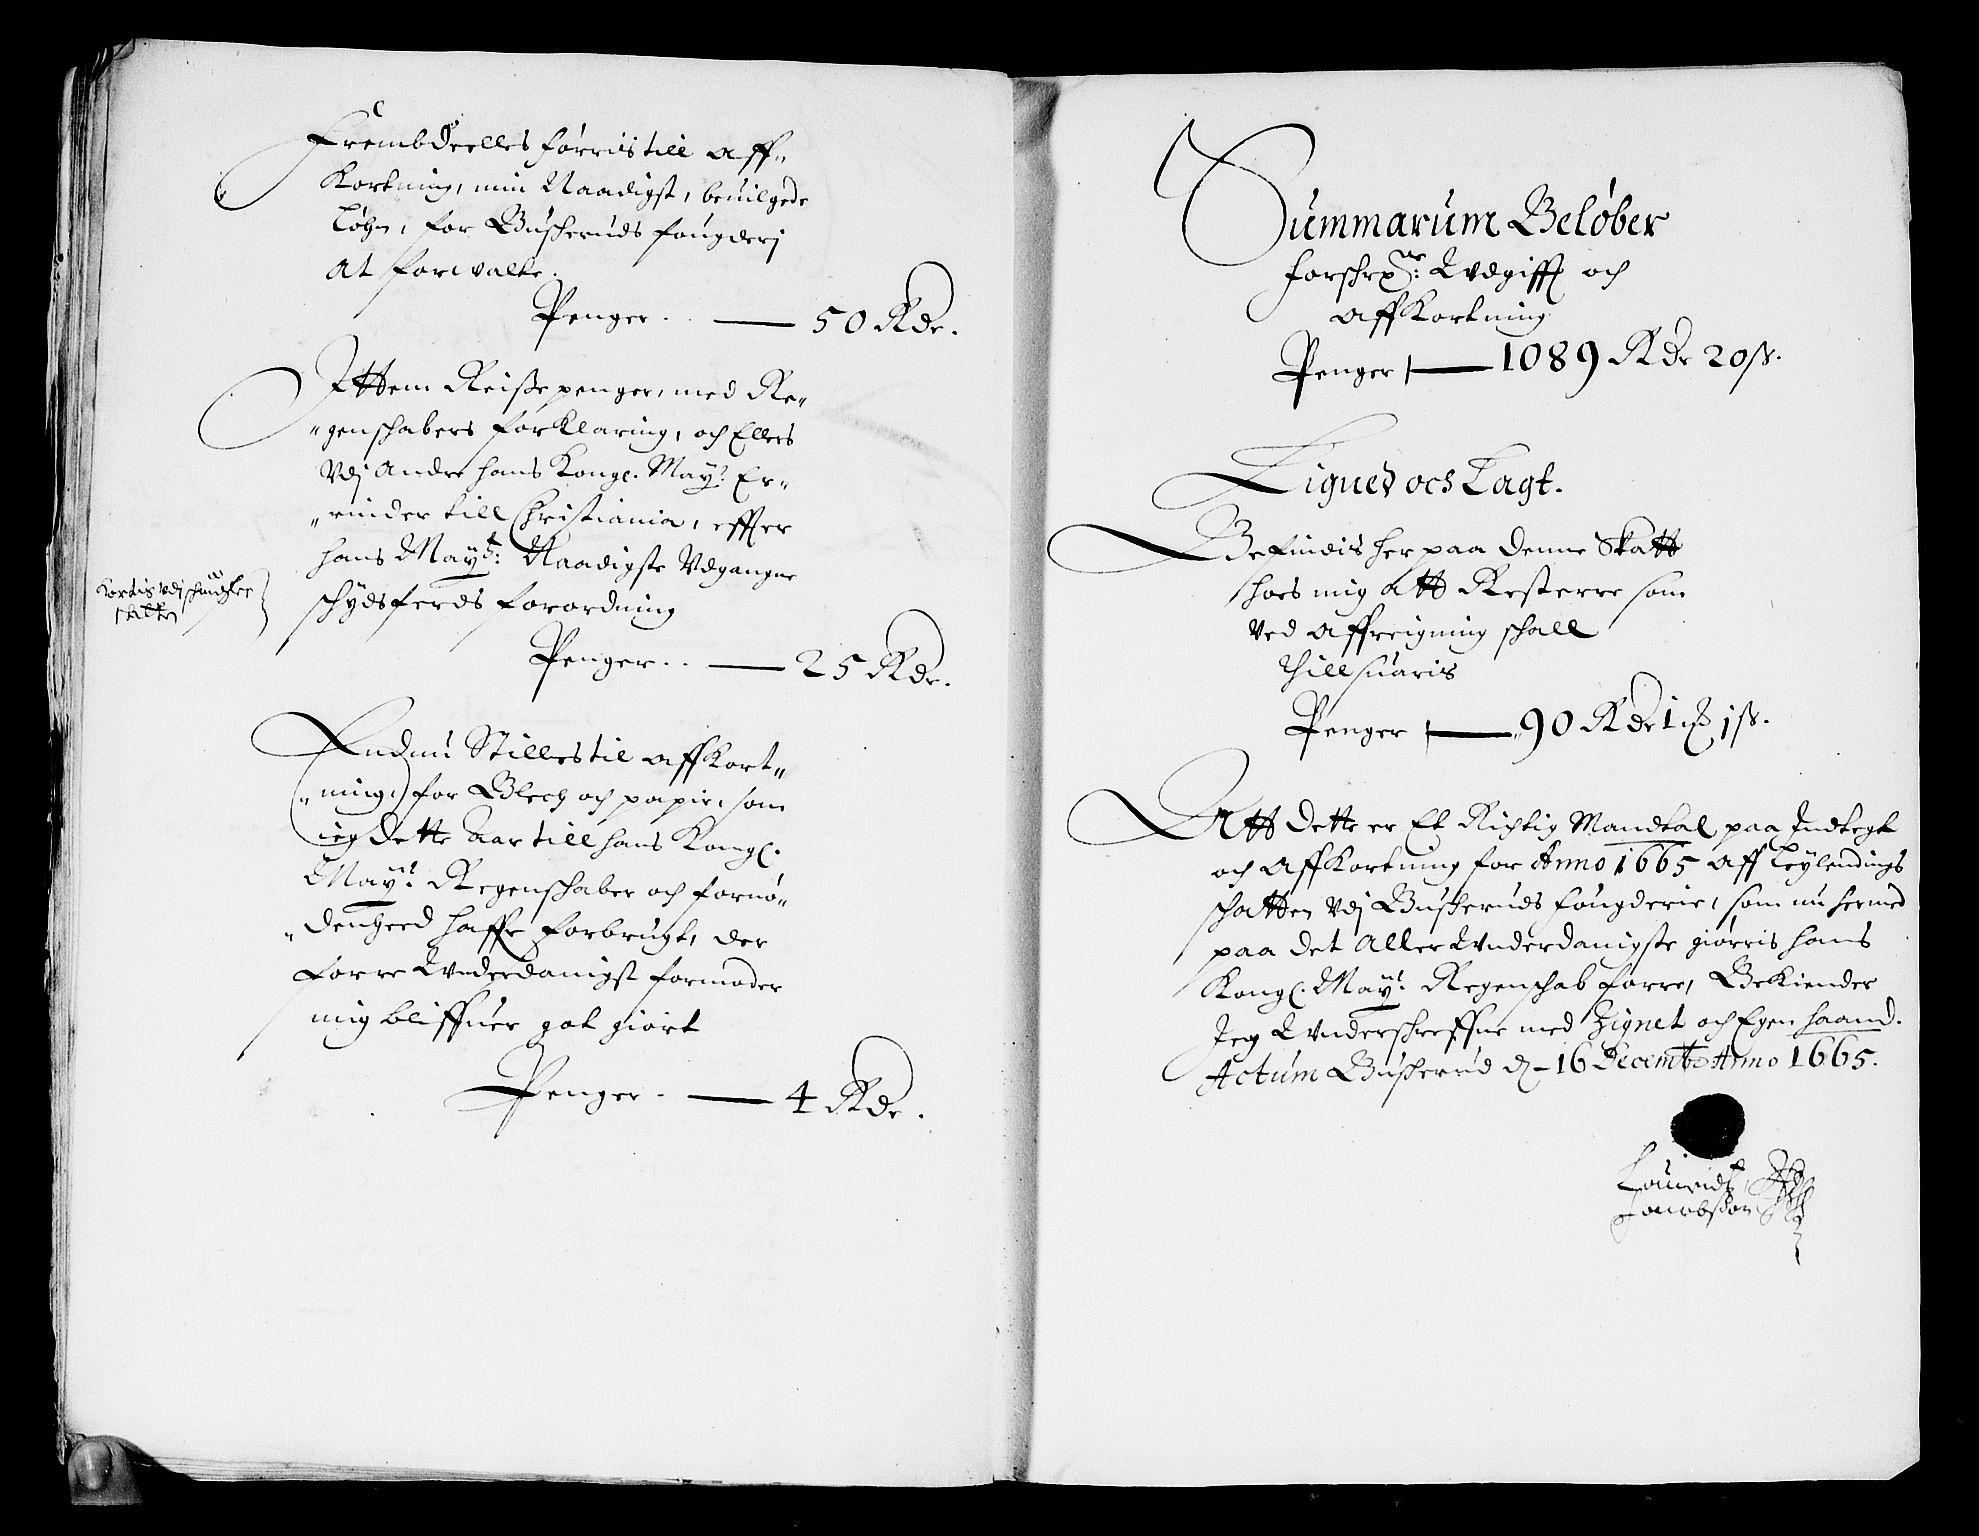 Frembdeelles förris till aff-
Kortning, min Naadigst, beuilgede
Løhn, for Buskeruds fougderj
at forwalte.
Penger. . — 50 Rdr.
Ittem Reisse penger, med Re-
-genschabers forKlaring, och Ellers
Vdj Andre hans Kongl. Mayts: Er-
-rinder till Christiania, effter
hans Mayts: Naadigste Vdgangne
schydsferds forordning
Kortis vdj
Skatten
Penger. . — 25 Rdr.
Endnu Stilles til affKort-
-ning, for Blech och papir, som
ieg dette Aar till hans Kongl.
Mayts: Regenschaber och fornø-
-denheed haffr forbrugt, der
forre Vnderdanigst formoder
mig bliffuer got giört
Penger. — 4 Rdr.
Summarum Beløber
forschrne: Vdgifft och
affKortning
Penger — 1089 Rdr 20 ß.
Lignet och Lagt.
Befindis her paa denne Skatt
hoes mig att Resterre som
ved affreigning schall
thill suaris
Penger — 90 Rdr 1 ort 1 ß.
Att dette er Et Richtig Mandtal paa Indtegt
och affKortning for Anno 1665 aff Leylendings
schatten Vdj Buskeruds fougderie, som nu hermed
paa det Aller Vnderdanigste giörris hans
Kongl. Mayts: Regenschab forre, BeKiender
Jeg Vnderschreffne med Zignet och Egen haand.
Actum Buskerud d. 16 Decemb Anno 1665.
Lauridtz
Jacobsøn